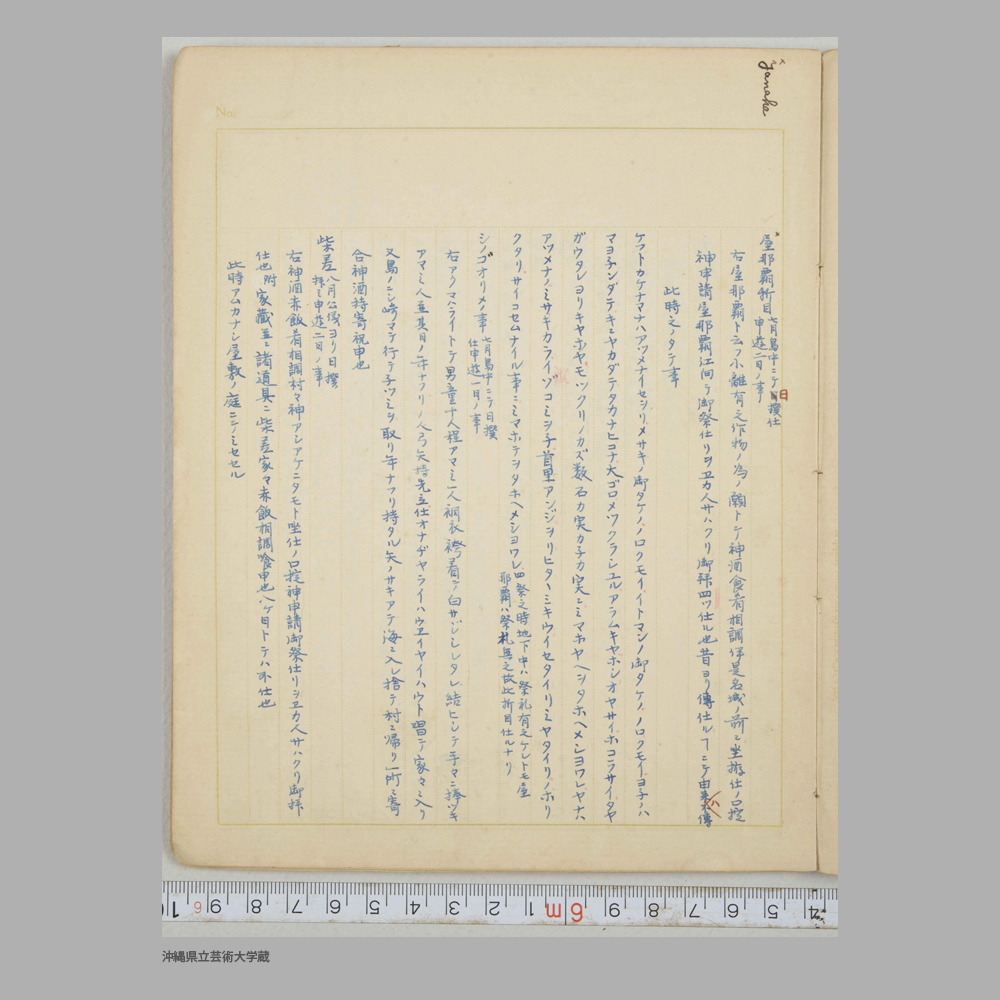 Yanaha
No.
屋那覇折目 七月島中ニテ日撰仕
申遊二日ノ事
日
右屋那覇ト云フ小離有之作物ノ為ノ願トテ神酒食肴相調伊是名城ノ前ニ坐拵仕ノロ掟
神申請屋那覇江向テ御祭仕リヲヱカ人サハクリ御拝四ツ仕ル也昔ヨリ傳仕ルフニテ由来不傳
ハ
此時之ノタテ事
ケフトカケナマナハアツメナイセシリメサキノ御タケノノロクモイイトマンノ御タケノノロクモイヨ子ノハ
マヨ子ンダテキミヤカダテタカナヒコナ大ゴロメワクラシユルアラムキヤホシオヤサイホコラサイタヤ
ガウタレヨリキヤホヤモツクリノカズ数石カ実カ子カ実ニミマホヤヘシタホヘメシヨワレヤナハ
アツメナノミサキカライゾコミシ子首里アンジヲリヒターミキウイセタイリミヤタイリノホリ
クタリサイコセムナイル事ニミマホテシタホヘメシヨワレ 四祭之時地下中ハ祭礼有之ケレトモ屋
那覇ハ祭札無之故此折目仕ルナリ
シノゴオリメノ事 七月島中ニテ日撰
仕申遊一日ノ事
右アクマハライトテ男童十人程アマミ一人胴衣袴着テ白サジシレタレ結ヒシテ手マニ捧ツキ
アマミ人立其日ノ年ナフリノ人弓矢持先立仕オナヂヤライハウヱイヤイハウト唱テ家々ミ入リ
又島ノニシ崎マテ行テ子ツミヲ取リ年ナフリ持タル矢ノサキアテ海ニ入レ捨テ村ニ帰リ一所ニ寄
合神酒持寄祝申也
柴差 八月公儀ヨリ日撰
拝ミ申遊二日ノ事
右神酒赤飯肴相調村々神アシアケニタモト坐仕ノロ掟神申請御祭仕リヲヱカ人サハクリ御拝
仕也附家蔵並ニ諸道具ニ柴差家々赤飯相調喰申也八ヶ月トテハ不仕也
此時アムカナシ屋敷ノ庭ニテミセセル
10 1 6 9 8 7 6 5 4 3 2 1 6m 9 8 7 6 5 4
沖縄県立芸術大学蔵